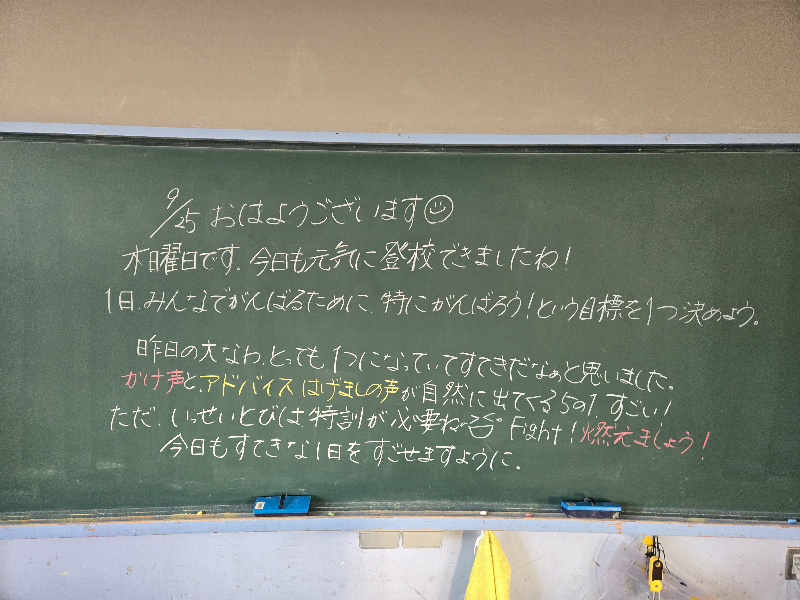 9/25 おはようございます
木曜日です。今日も元気に登校できましたね！
1日、みんなでがんばるために、特にがんばろう！という目標を1つ決めよう。
昨日の大なわ、とっても1つになっていてすてきだなぁと思いました。
かけ声と、アドバイス はげましの声が自然に出てくる5の1、すごい！
ただ、いっせいとびは、特訓が必要ね Fight！燃えましょう！
今日もすてきな1日をすごせますように。